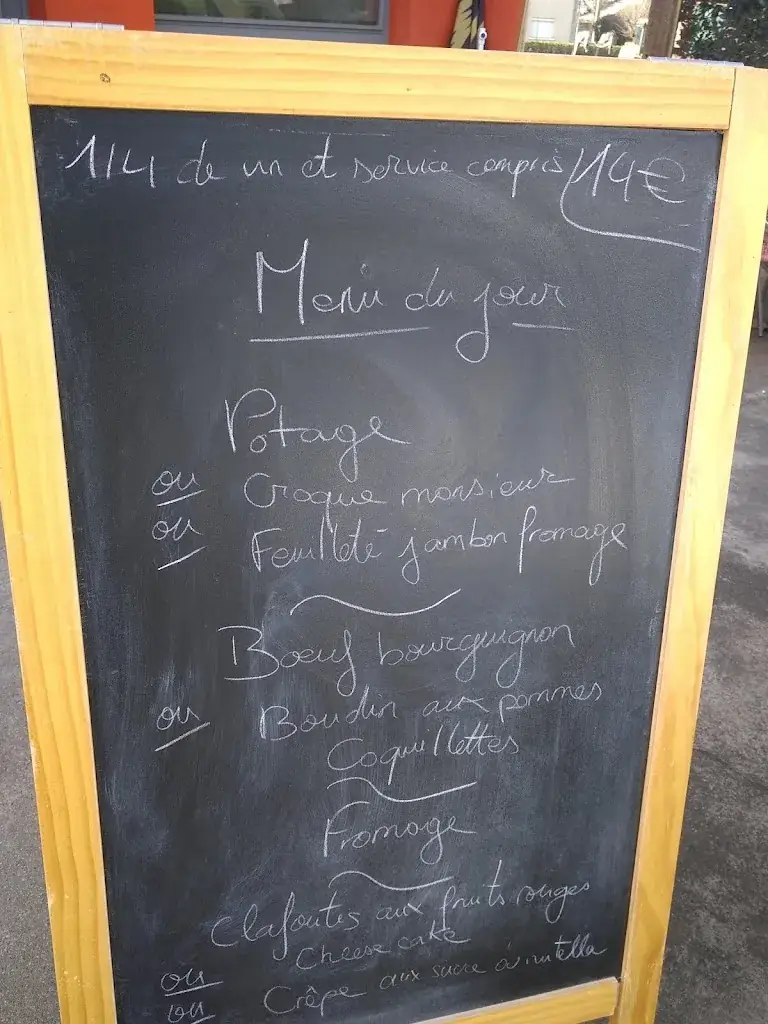 1/4 de vin et service compris 14€
Menu du jour
Potage
ou Croque monsieur
ou Feuilleté jambon fromage
Boeuf bourguignon
ou Boudin aux pommes
Coquillettes
Fromage
Clafoutis aux fruits rouges
ou Cheese cake
ou Crêpe aux sucre où nutella